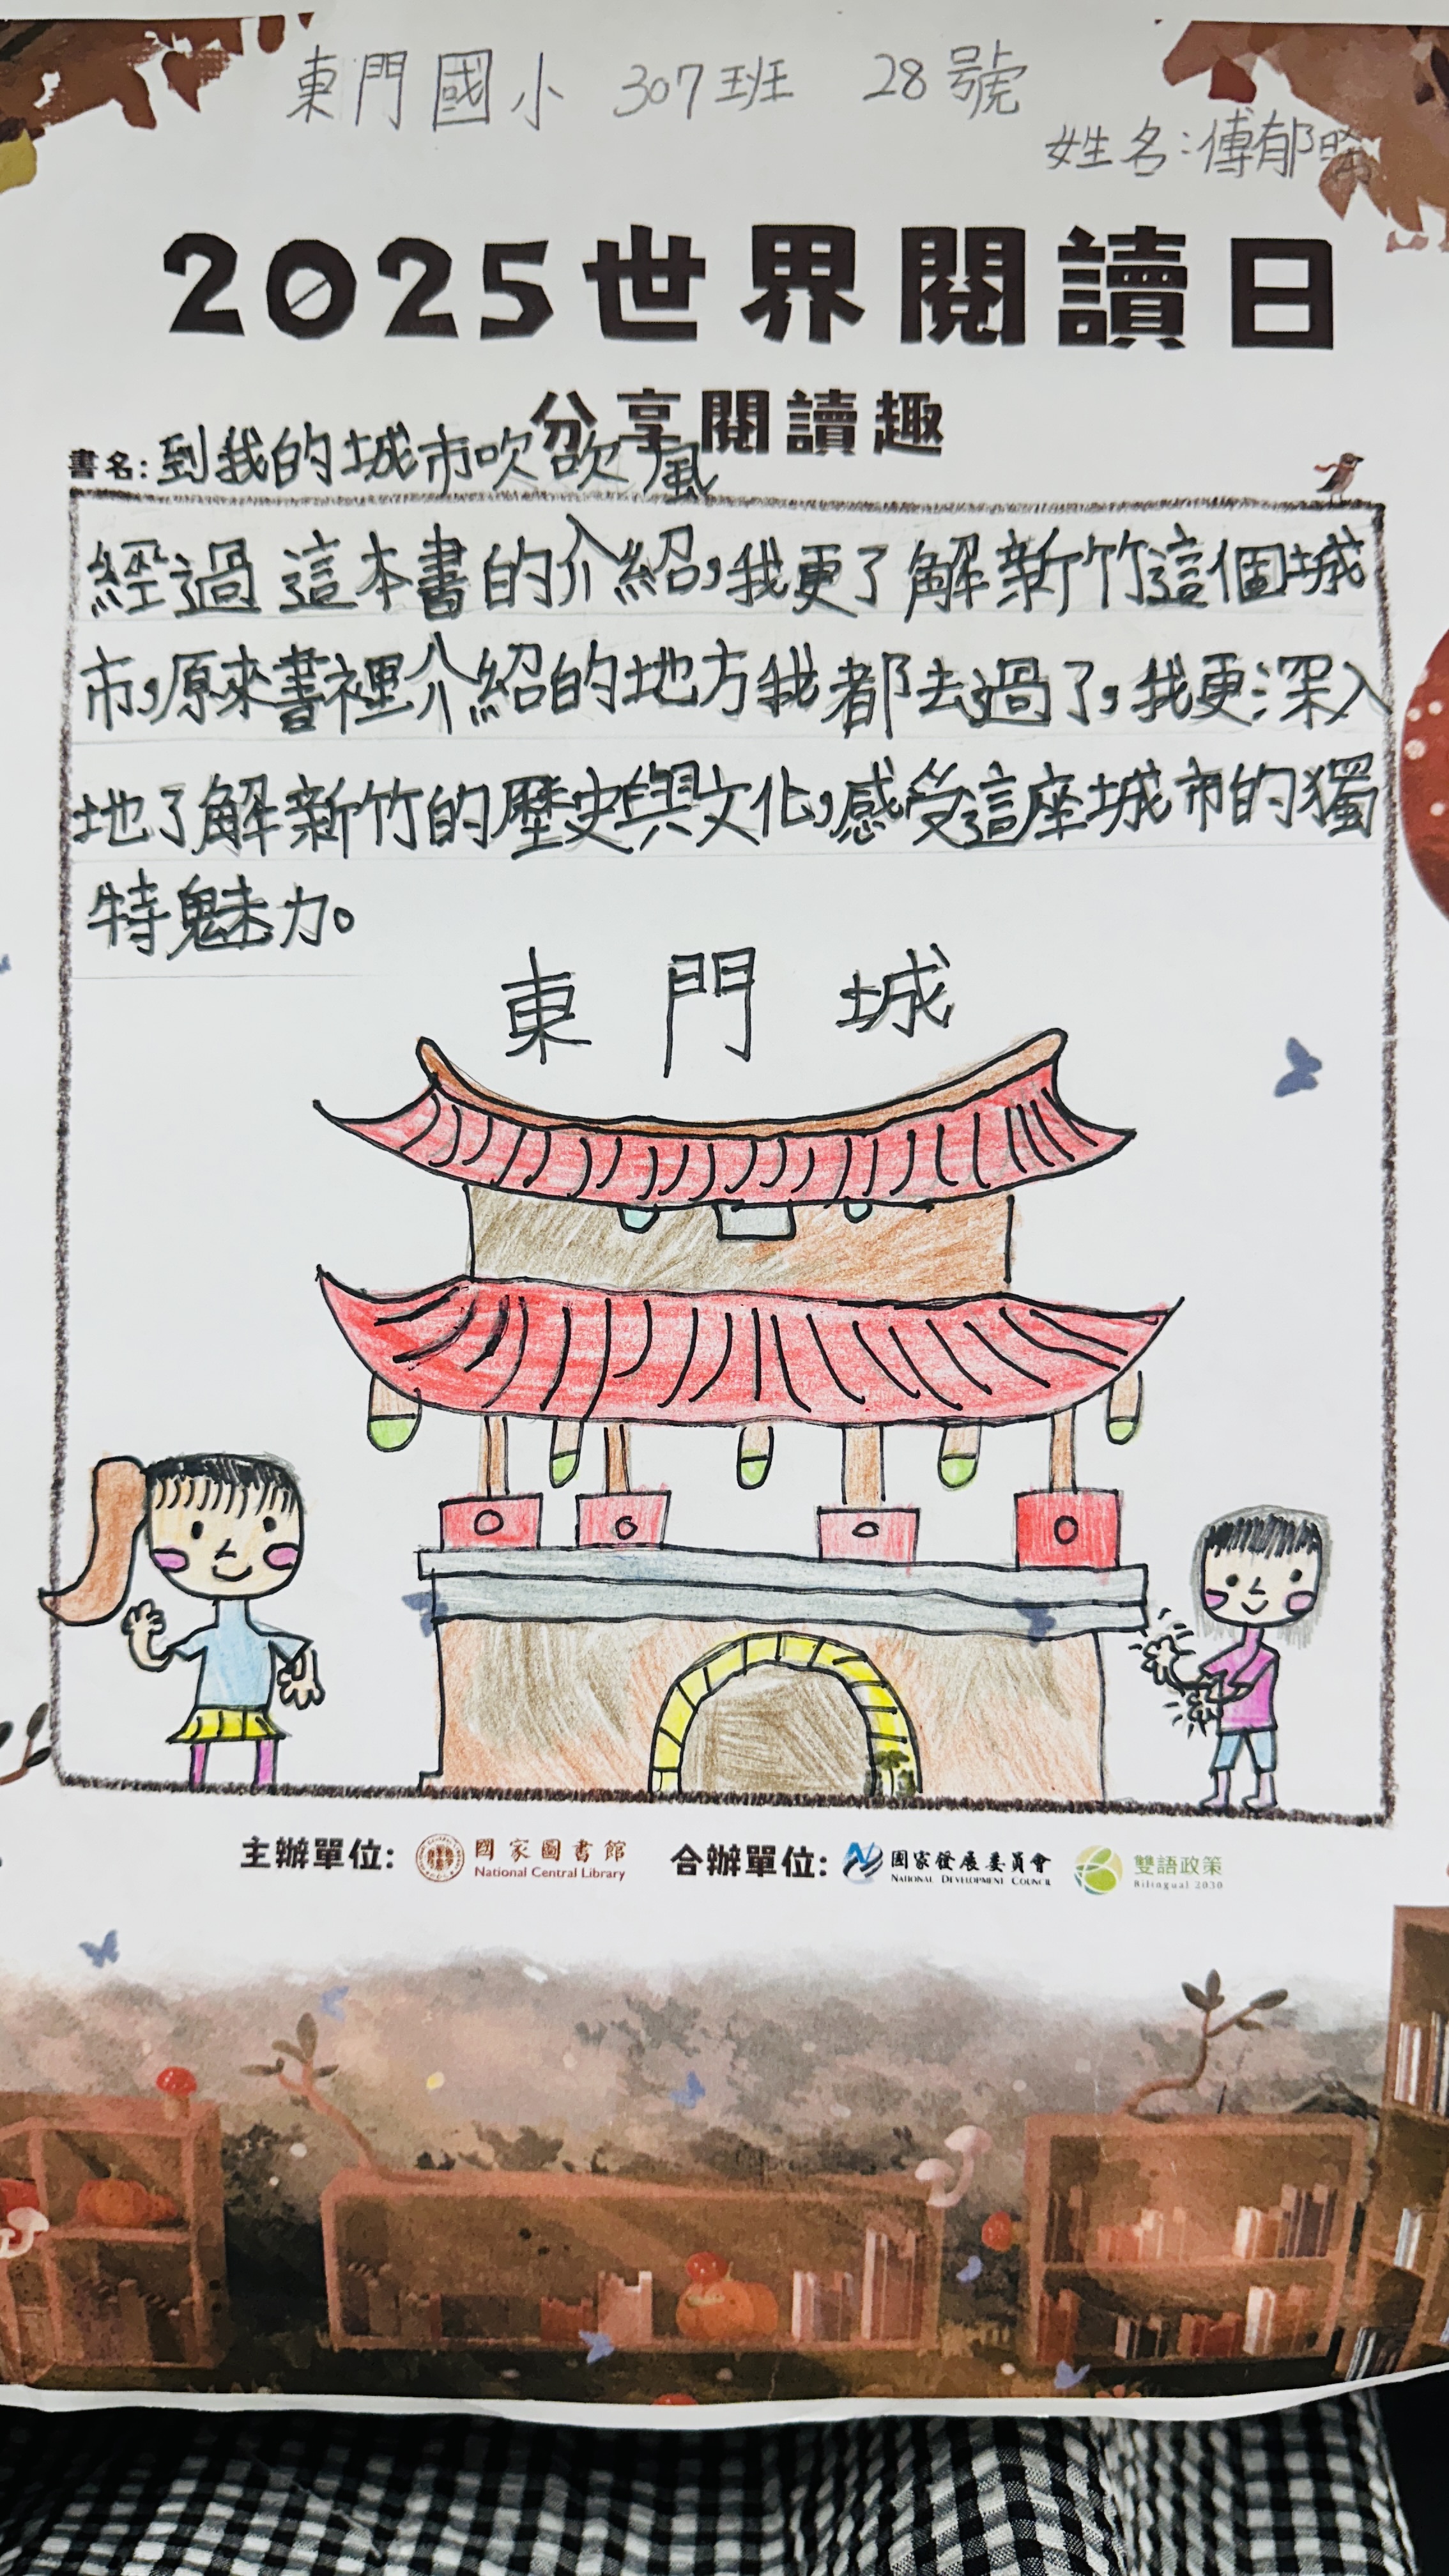 東門國小 307班 28號
姓名:傅郁
2025世界閱讀日
分享閱讀趣
書名:到我的城市吹吹風
經過這本書的介紹,我更了解新竹這個城
市,原來書裡介紹的地方我都去過了,我更深入
地了解新竹的歷史與文化,感受這座城市的獨
特魅力。
東門城
主辦單位: 國家圖書館 National Central Library 合辦單位: 國家發展委員會 NATIONAL DEVELOPMENT COUNCIL 雙語政策 Bilingual 2030